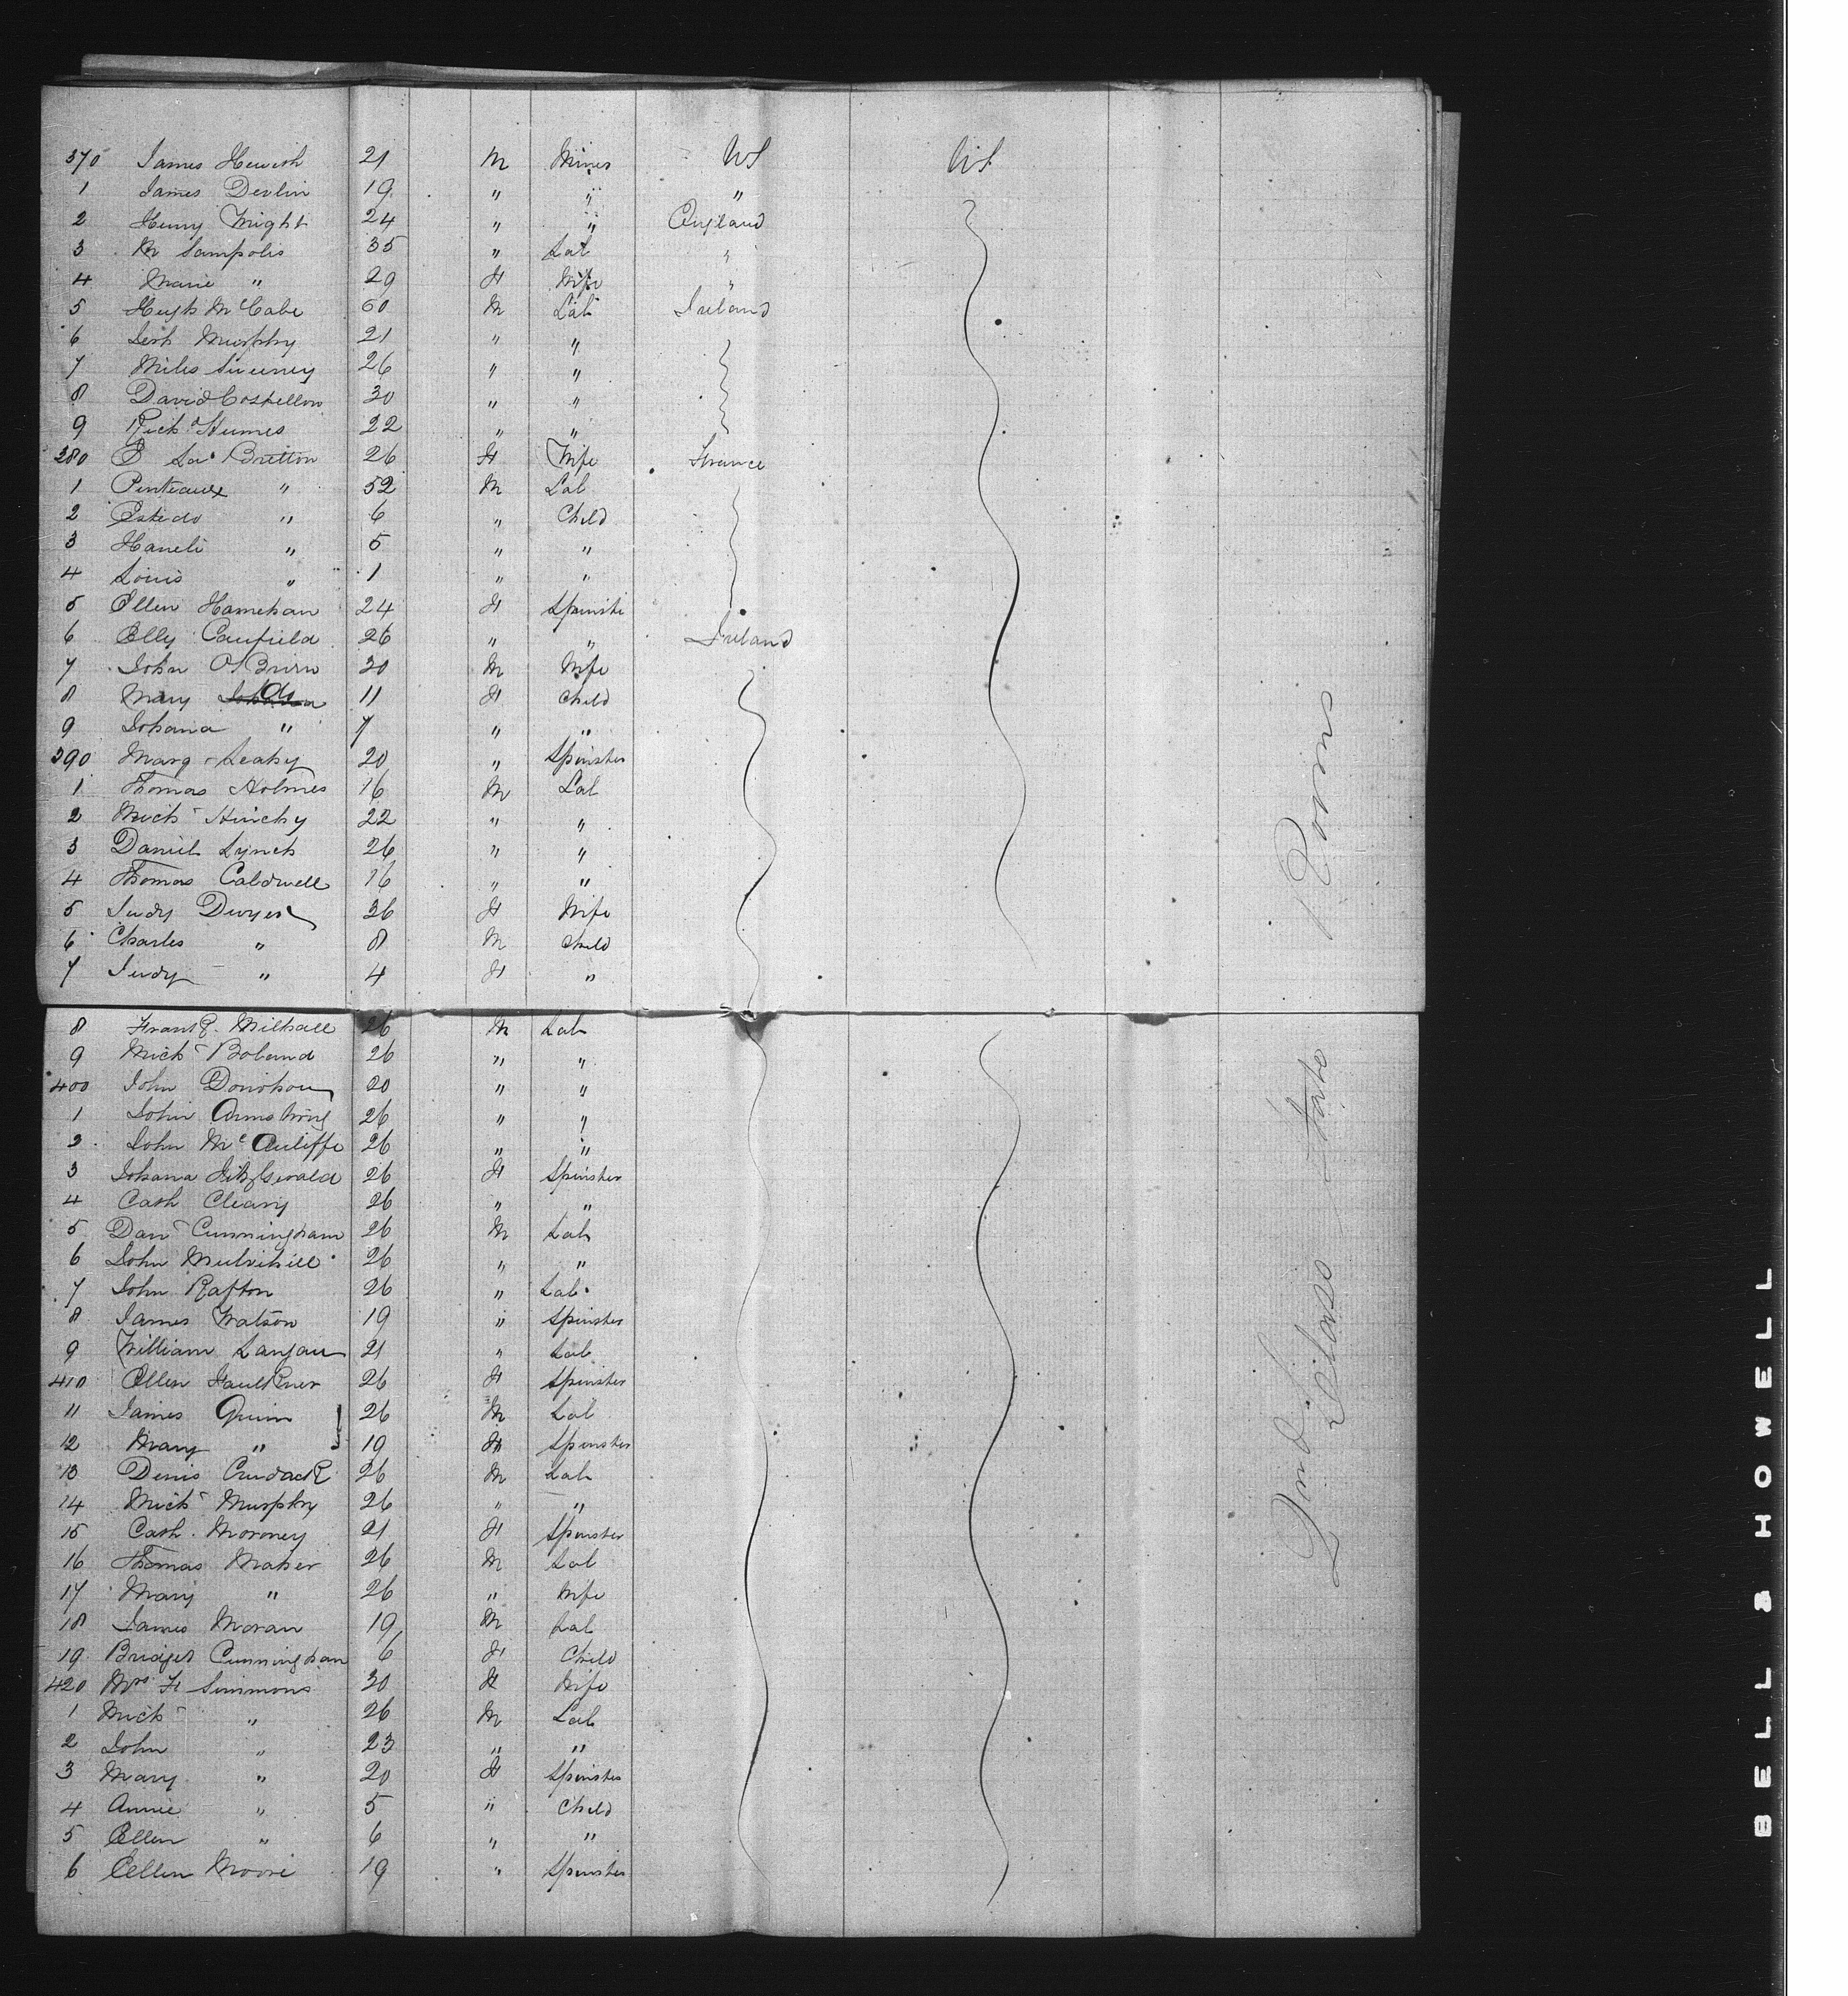 370 James Hewish 21 M Miner US US
1 James Devlin 19 " " "
2 Henry Wright 24 " " England
3 M Sampolis 35 " Lab "
4 Marie " 29 F Wife "
5 Hugh McCabe 60 M Lab Ireland
6 Murphy 21 " "
7 Miles Sweeney 26 " "
8 David Costellow 30 " "
9 Richd Humes 22 " "
380 Britton 26 F Wife France
1 " 52 M Lab
2 " 6 " Child
3 " 5 " "
4 Louis " 1 " "
5 Ellen 24 F Spinste
6 Elly Caufield 26 " " Ireland
7 John O'Brien 30 M Wife
8 Mary Do 11 F Child
9 Johana " 7 " "
390 Marg Leahy 20 " Spinster
1 Thomas Holmes 16 M Lab
2 Mich Hinchy 22 " "
3 Daniel Lynch 26 " "
4 Thomas Caldwell 16 " "
5 Judy Dwyer 26 F Wife
6 Charles " 8 M Child
7 Judy " 4 F "
8 Frank Milhall 26 M Lab
9 Mich Boland 26 " "
400 John Donohou 20 " "
1 John Armstrong 26 " "
2 John McAuliffe 26 " "
3 Johana FitzGerald 26 F Spinster
4 Cath Cleary 26 " "
5 Dan Cunningham 26 M Lab
6 John Mulvihill 26 " "
7 John Rafton 26 " Lab
8 James Watson 19 " Spinster
9 William Langan 21 " Lab
410 Ellen Faulkner 26 F Spinster
11 James Quinn 26 M Lab
12 Mary " 19 F Spinster
13 Denis 26 M Lab
14 Mich Murphy 26 " "
15 Cath Moroney 21 F Spinster
16 Thomas Maher 26 M Lab
17 Mary " 26 " Wife
18 James Moran 19 M Lab
19 Bridget Cunningham 6 F Child
420 Mrs F Simmons 30 F Wife
1 Mich " 26 M Lab
2 John " 23 " "
3 Mary " 20 F Spinster
4 Annie " 5 " Child
5 Ellen " 6 " "
6 Ellen Moore 19 " Spinster
2nd Class State Rooms
BELL & HOWELL